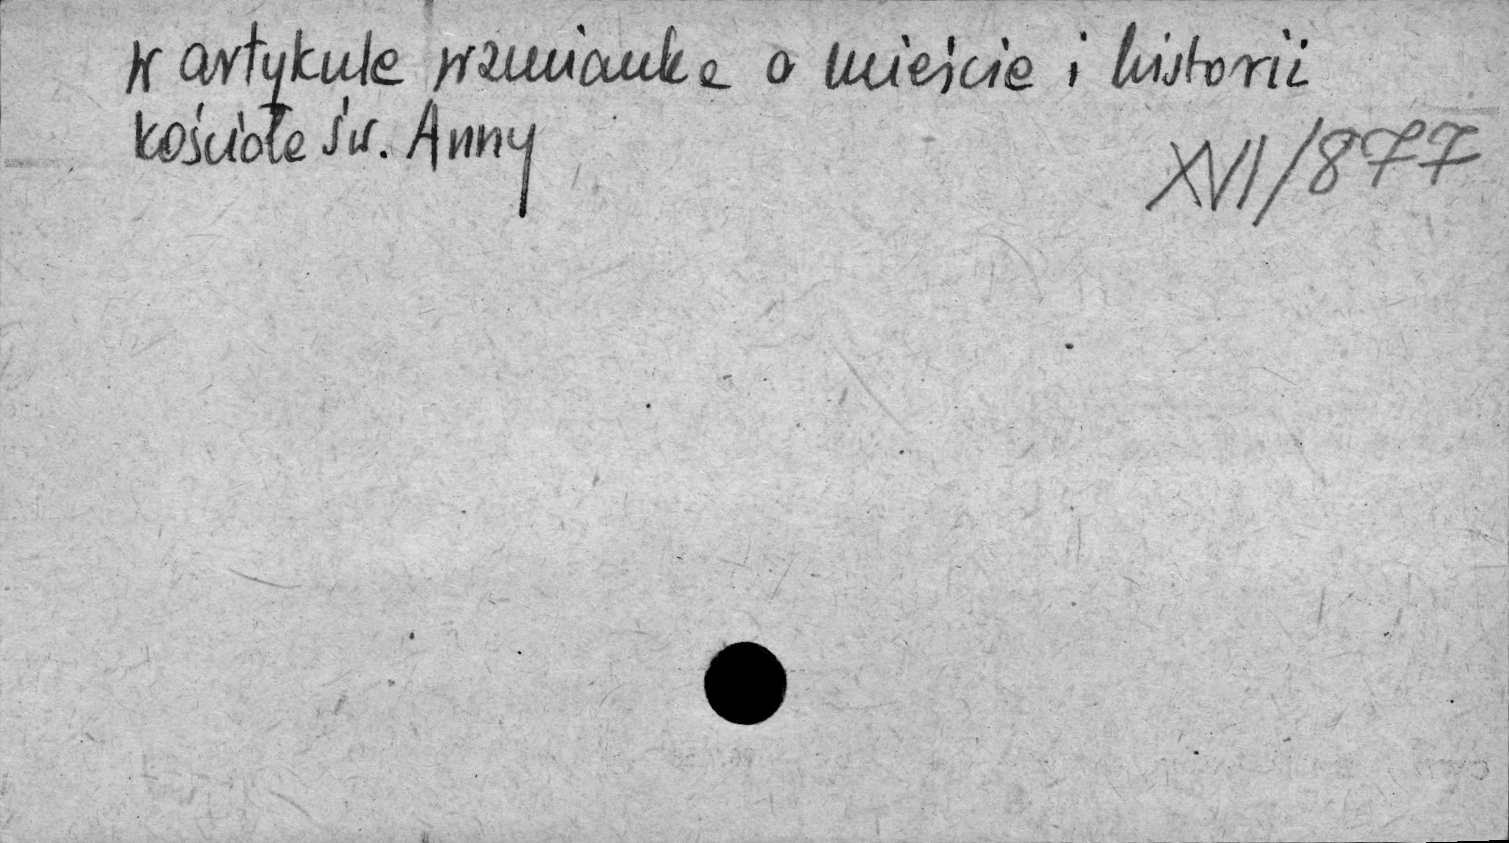 w artykule wzmianka o mieście i historii
kościoła św. Anny
XVI/877